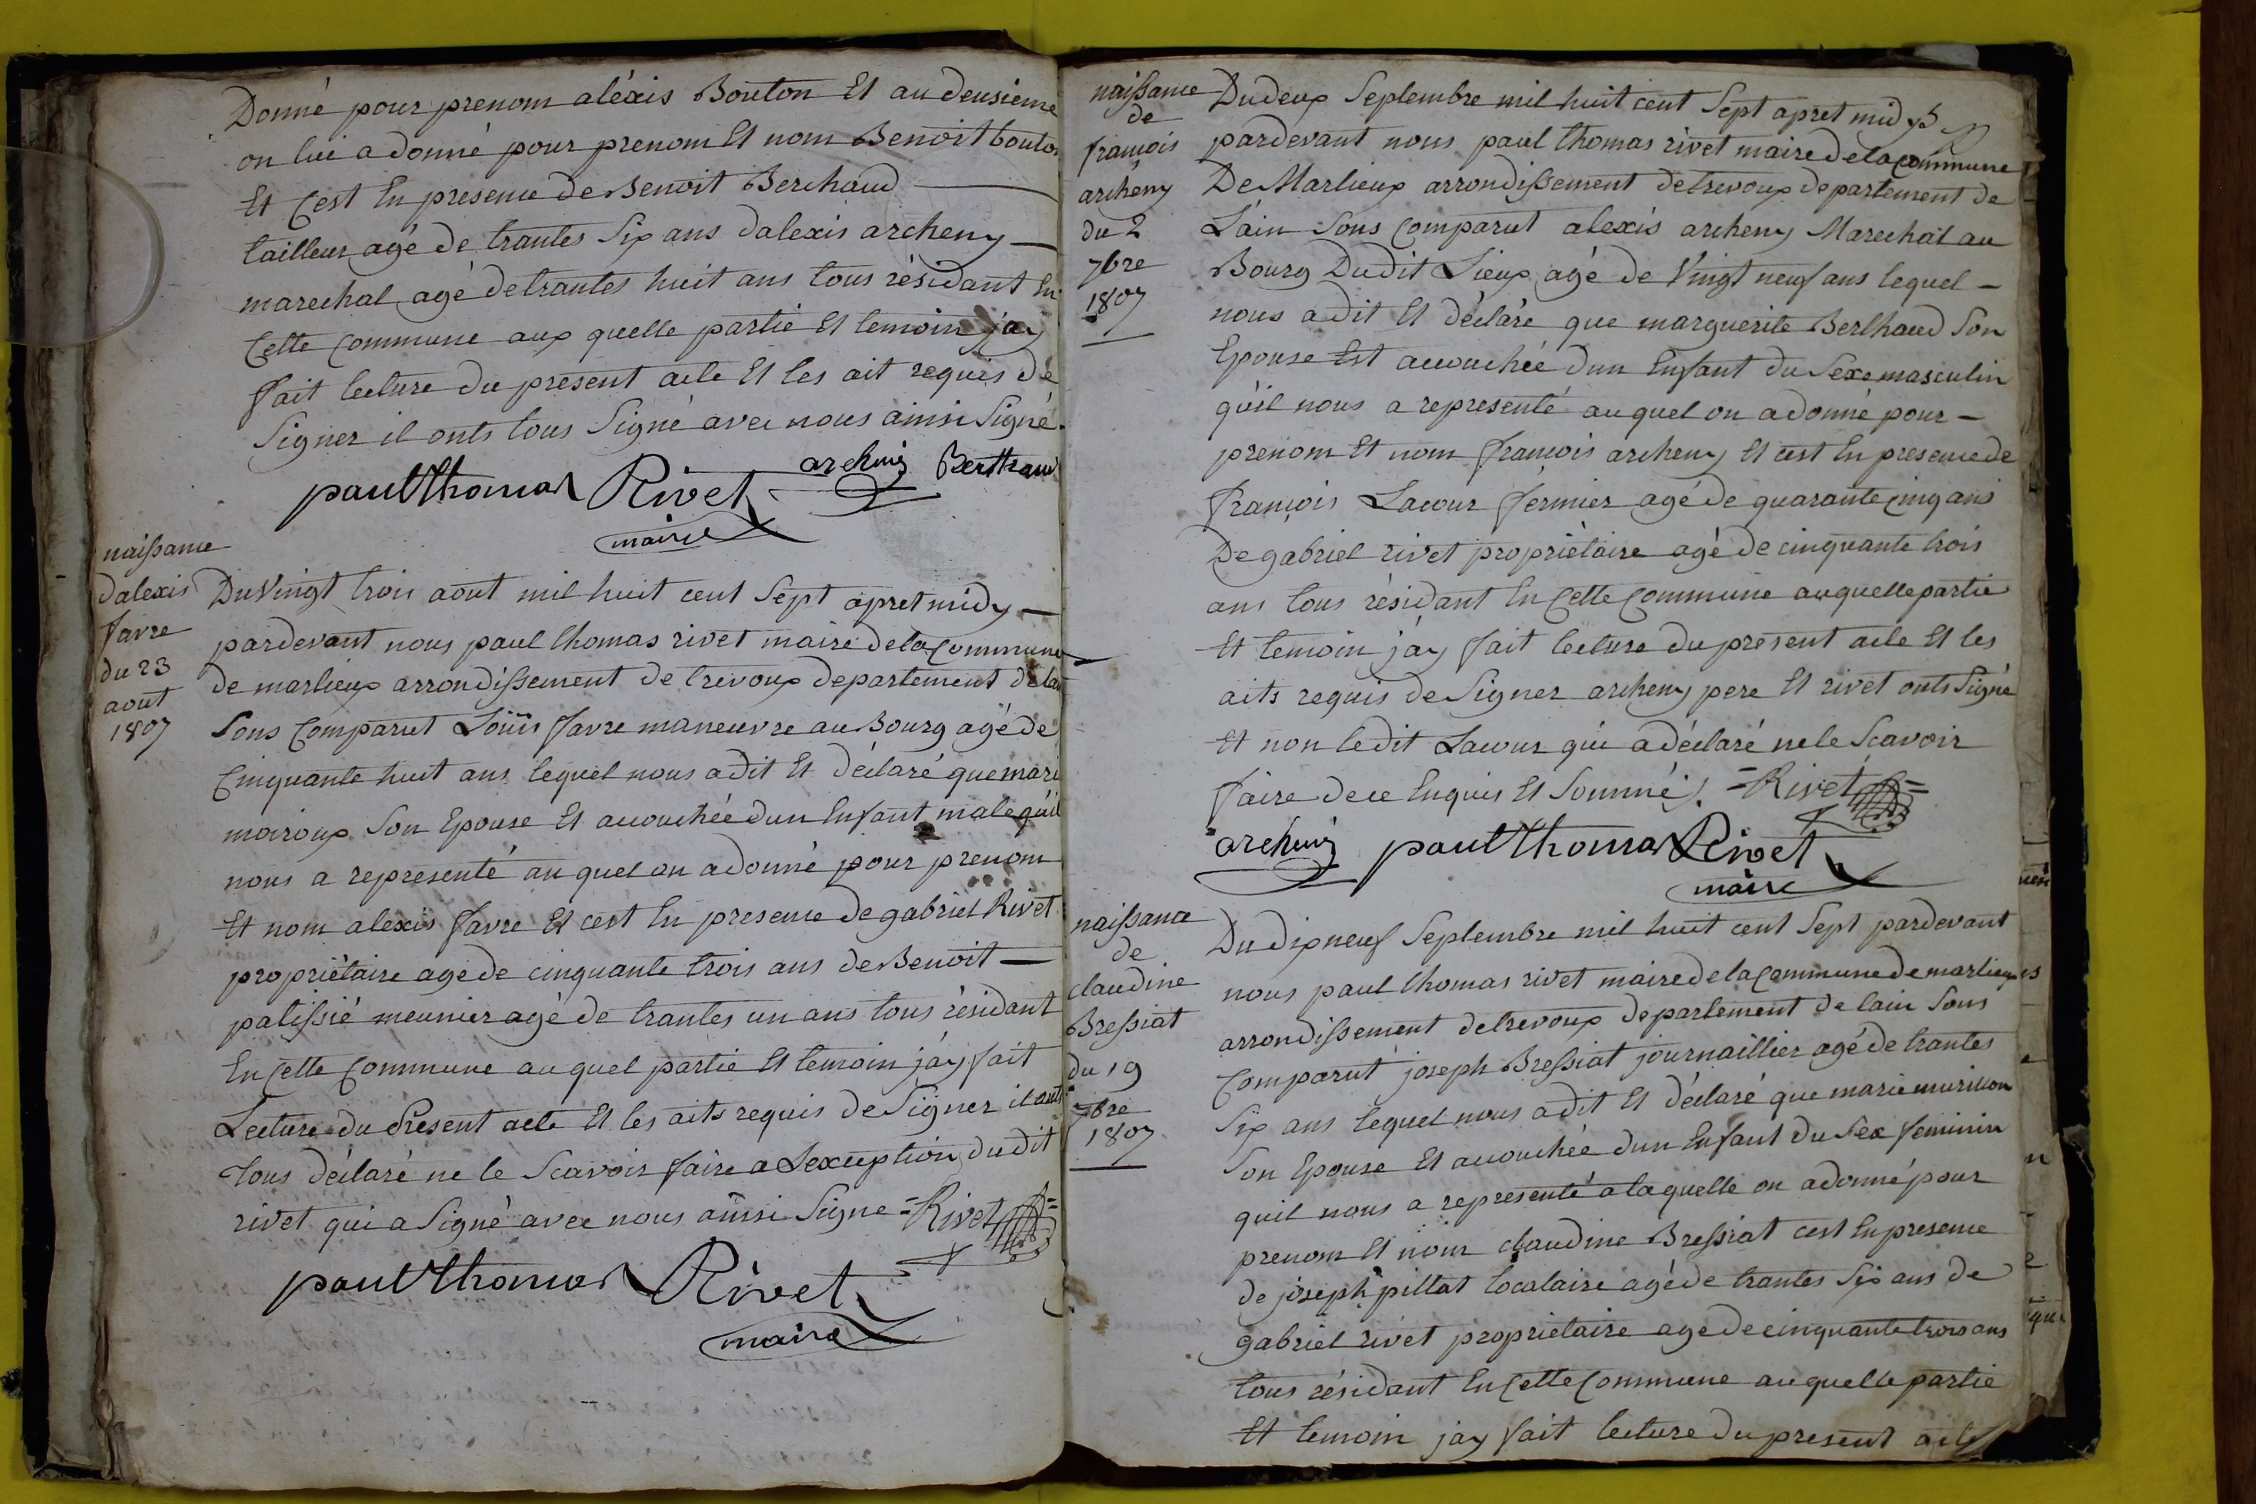 Donné pour prenom aléxis Bouton Et au deusieme
on lui a donné pour prenom Et nom Benoit bouton
Et Cest En presence de Benoit Berthaud
tailleur agé de trantes Six ans dalexis archeny
marechal agé de trantes huit ans tous résidant En
Cette Commune aux quelle partie Et temoin jay
fait lecture du present acte Et les ait requis de
Signer il onts tous Signé avec nous ainsi Signé
archeny Berthaud
paul thomas Rivet
maire
naissance
dalexis
favre
du 23
aout
1807
Du Vingt trois aout mil huit cent Sept apret midy
pardevant nous paul thomas rivet maire de la Commune
de marlieux arrondissement de trevoux departement de lain
Sons Comparut Loüis favre maneuvre au Bourg agé de
Cinquante huit ans lequel nous a dit Et déclaré que marie
moiroux Son Epouse Et accouchée dun Enfant male qúil
nous a representé au quel on a donné pour prenom
Et nom alexis favre Et cest En presence de gabriel Rivet
propriétaire age de cinquante trois ans de Benoit
patissié meunier agé de trantes un ans tous résidant
En Cette Commune au quel partie Et temoin jáy fait
Lecture du Present acte Et les aits requis de Signer il onts
Tous déclaré ne le Scavoir faire a Lexception du dit
rivet qui a Signé avec nous ainsi Signe = Rivet =
paul thomas Rivet
maire
naissance
de
francois
archeny
du 2
7bre
1807
Du deux Septembre mil huit cent Sept apret midy
pardevant nous paul thomas rivet maire de la Commune
De Marlieux arrondissement de trevoux departement de
L'ain Sons Comparut alexis archeny Marechal au
Bourg Dudit Lieux agé de Vingt neuf ans lequel
nous a dit Et déclaré que marguerite Berthaud Son
Epouse Est accouchée dun Enfant du Sexe masculin
qúil nous a representé au quel on a donné pour
prenom Et nom francois archeny Et cest En presence de
francois Lacour fermier agé de quarante Cinq ans
De gabriel rivet propriétaire agé de cinquante trois
ans tous résidant En Cette Commune auquelle partie
Et temoin jáy fait lecture du présent acte Et les
aits requis de Signer archeny pere Et rivet onts Signé
Et non le dit Lacour qui a déclaré ne le Scavoir
faire de ce Enquis Et Sommé = Rivet =
archeny paul thomas Rivet
maire
naissance
de
claudine
Bressiat
du 19
7bre
1807
Du dix neuf Septembre mil huit cent Sept pardevant
nous paul thomas rivet maire de la Commune de marlieux
arrondissement de trevoux departement de lain Sons
Comparut joseph Bressiat journaillier agé de trantes
Six ans lequel nous a dit Et déclaré que marie
Son Epouse Et accouchée dun Enfant du Sex feminin
quil nous a representé a laquelle on a donné pour
prenom Et nom claudine Bressiat cest En presence
de joseph pillat locataire agé de trantes Six ans de
gabriel rivet propriétaire age de cinquante trois ans
tous résidant En Cette Commune au quelle partie
Et temoin jay fait lecture du present acte